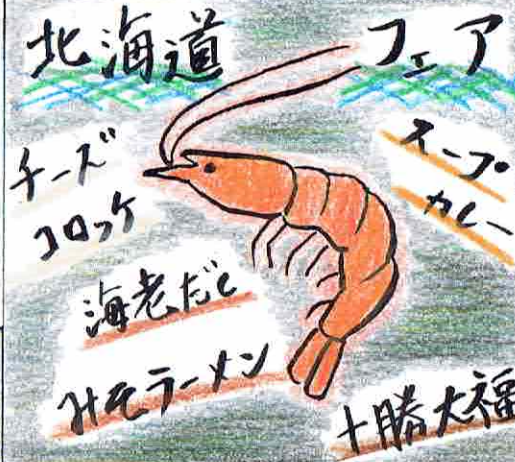 北海道 フェア
チーズ
コロッケ
スープ
カレー
海老だし
みそラーメン
十勝大福